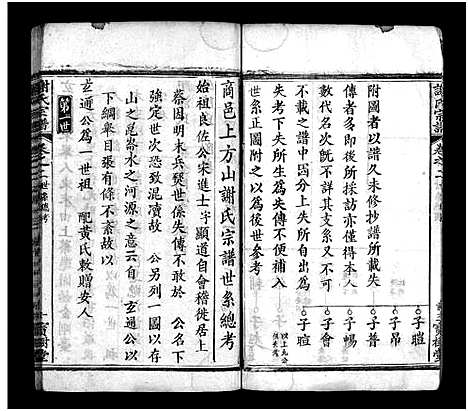 謝氏宗譜
卷之二
附圖者以譜久未修抄譜所載失
傳者多即後所採訪亦僅得本人
數代名次既不詳其支系又不入
不載之譜中因分上失所自出為
失考下失所生為失傳不便補入
世系正圖附之以為後世參考
子暟
子昂
子暢
商邑上方山謝氏宗譜世系總考
始祖良佐公宋進士字顯道自會稽徙居上
蔡因明末兵燹世係失傳不敢以
強定世次恐致混瀆故 公另列一國以存
山之崑崙水之河源之意云自 玄通公以
下綱舉目張有條不紊故以
玄通公為一世祖 配黃氏敕贈安人
第一世
謝氏宗譜
卷之二
寶樹堂